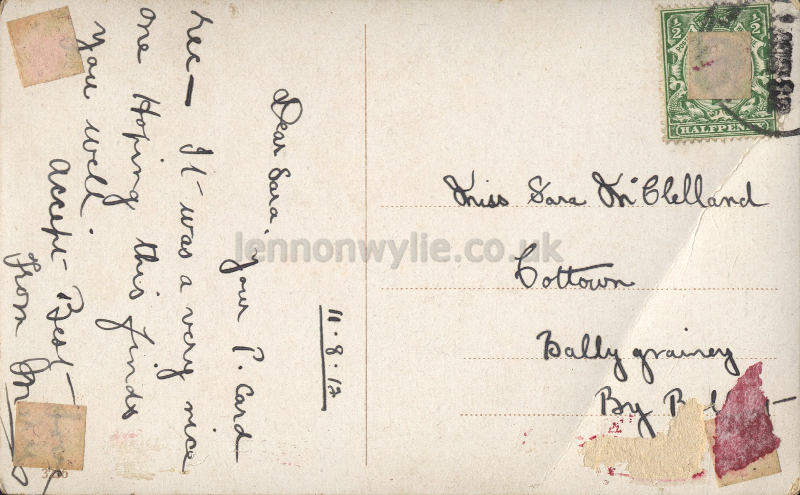 11.8.12
Dear Sara, your P. Card
rec— It was a very nice
one Hoping this finds
you well.
accept Best
from
Miss Sara McClelland
Cottown
Bally grainey
By
½ ½
HALFPENNY
lennonwylie.co.uk